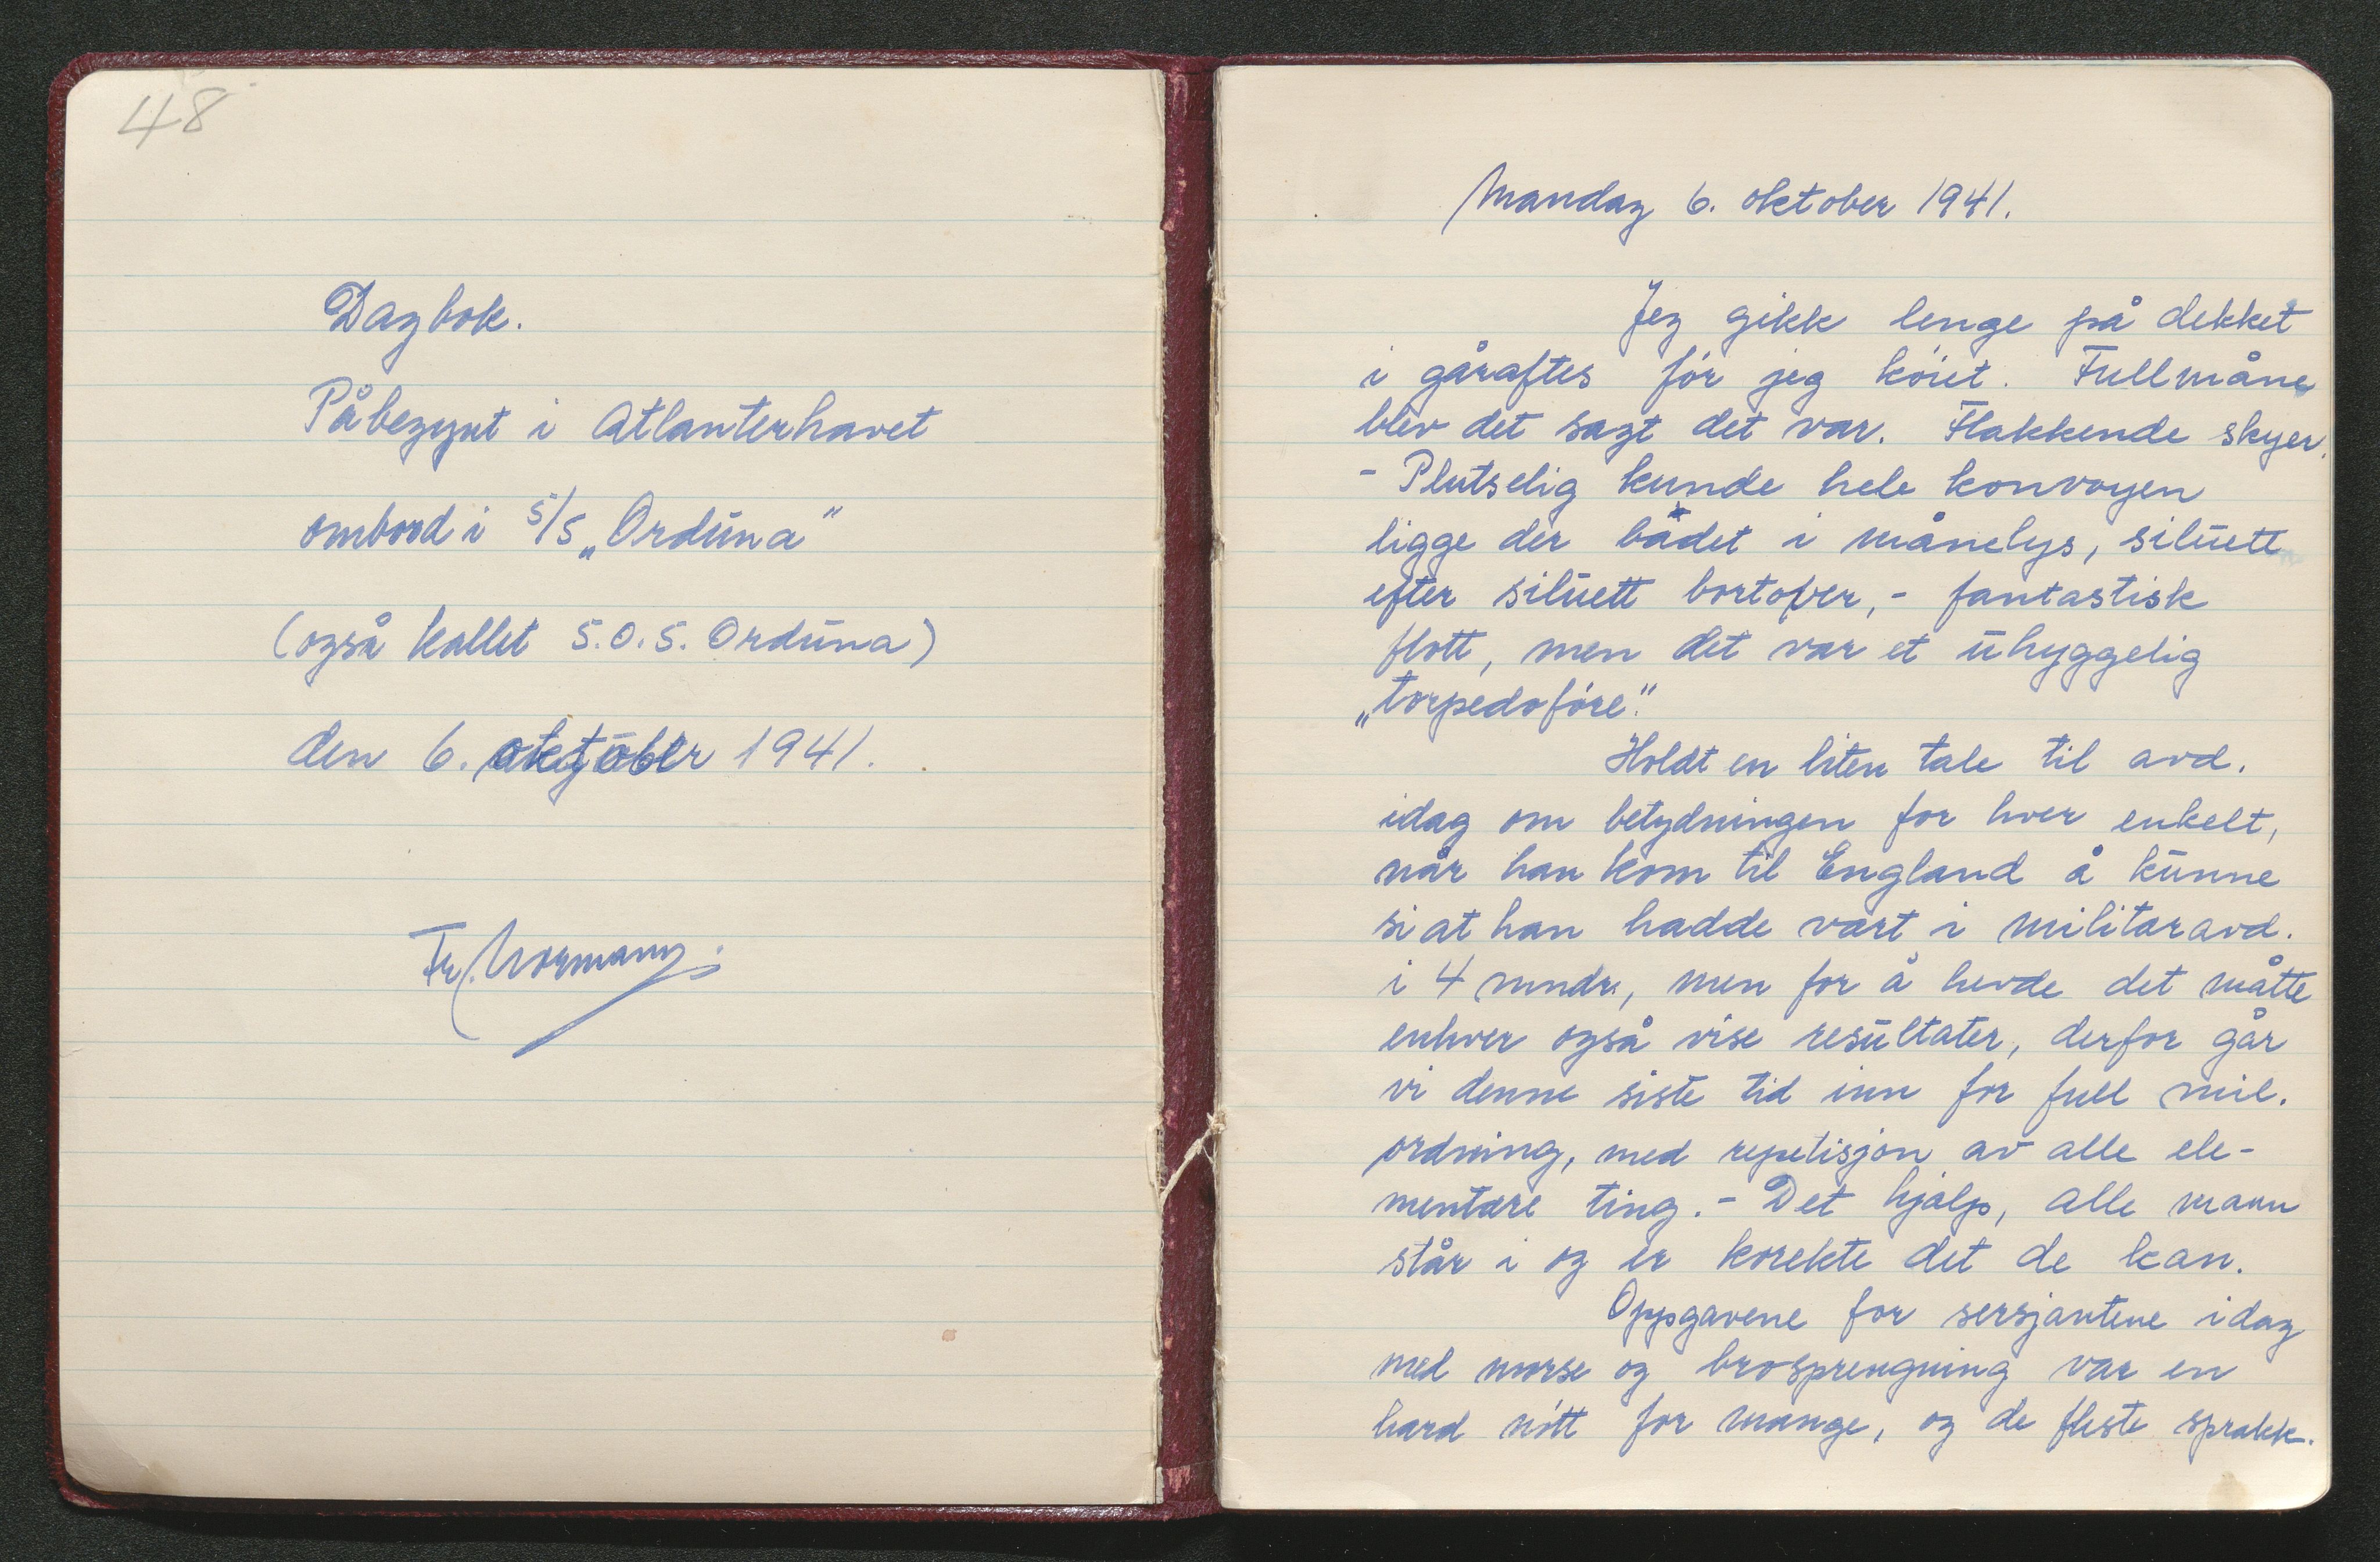 48
Dagbok.
Påbegynt i Atlanterhavet
ombord i S/S „Orduna"
(også kallet S.O.S. Orduna)
den 6. oktober 1941.
Fr. Normann.
Mandag 6. oktober 1941.
Jeg gikk lenge på dekket
i gåraftes før jeg køiet. Fullmåne
blev det sagt det var. Flakkende skyer.
- Plutselig kunde hele konvoyen
ligge der badet i månelys, siluett
efter siluett bortover, - fantastisk
flott, men det var et uhyggelig
„torpedoføre".
Holdt en liten tale til avd.
idag om betydningen for hver enkelt,
når han kom til England å kunne
si at han hadde vært i militæravd.
i 4 mndr., men for å hevde det måtte
enhver også vise resultater, derfor går
vi denne siste tid inn for full mil.
ordning, med repetisjon av alle ele-
mentære ting. - Det hjalp, alle mann
står i og er korekte det de kan.
Oppgavene for sersjantene idag
med morse og brosprengning var en
hard nøtt for mange, og de fleste sprakk.